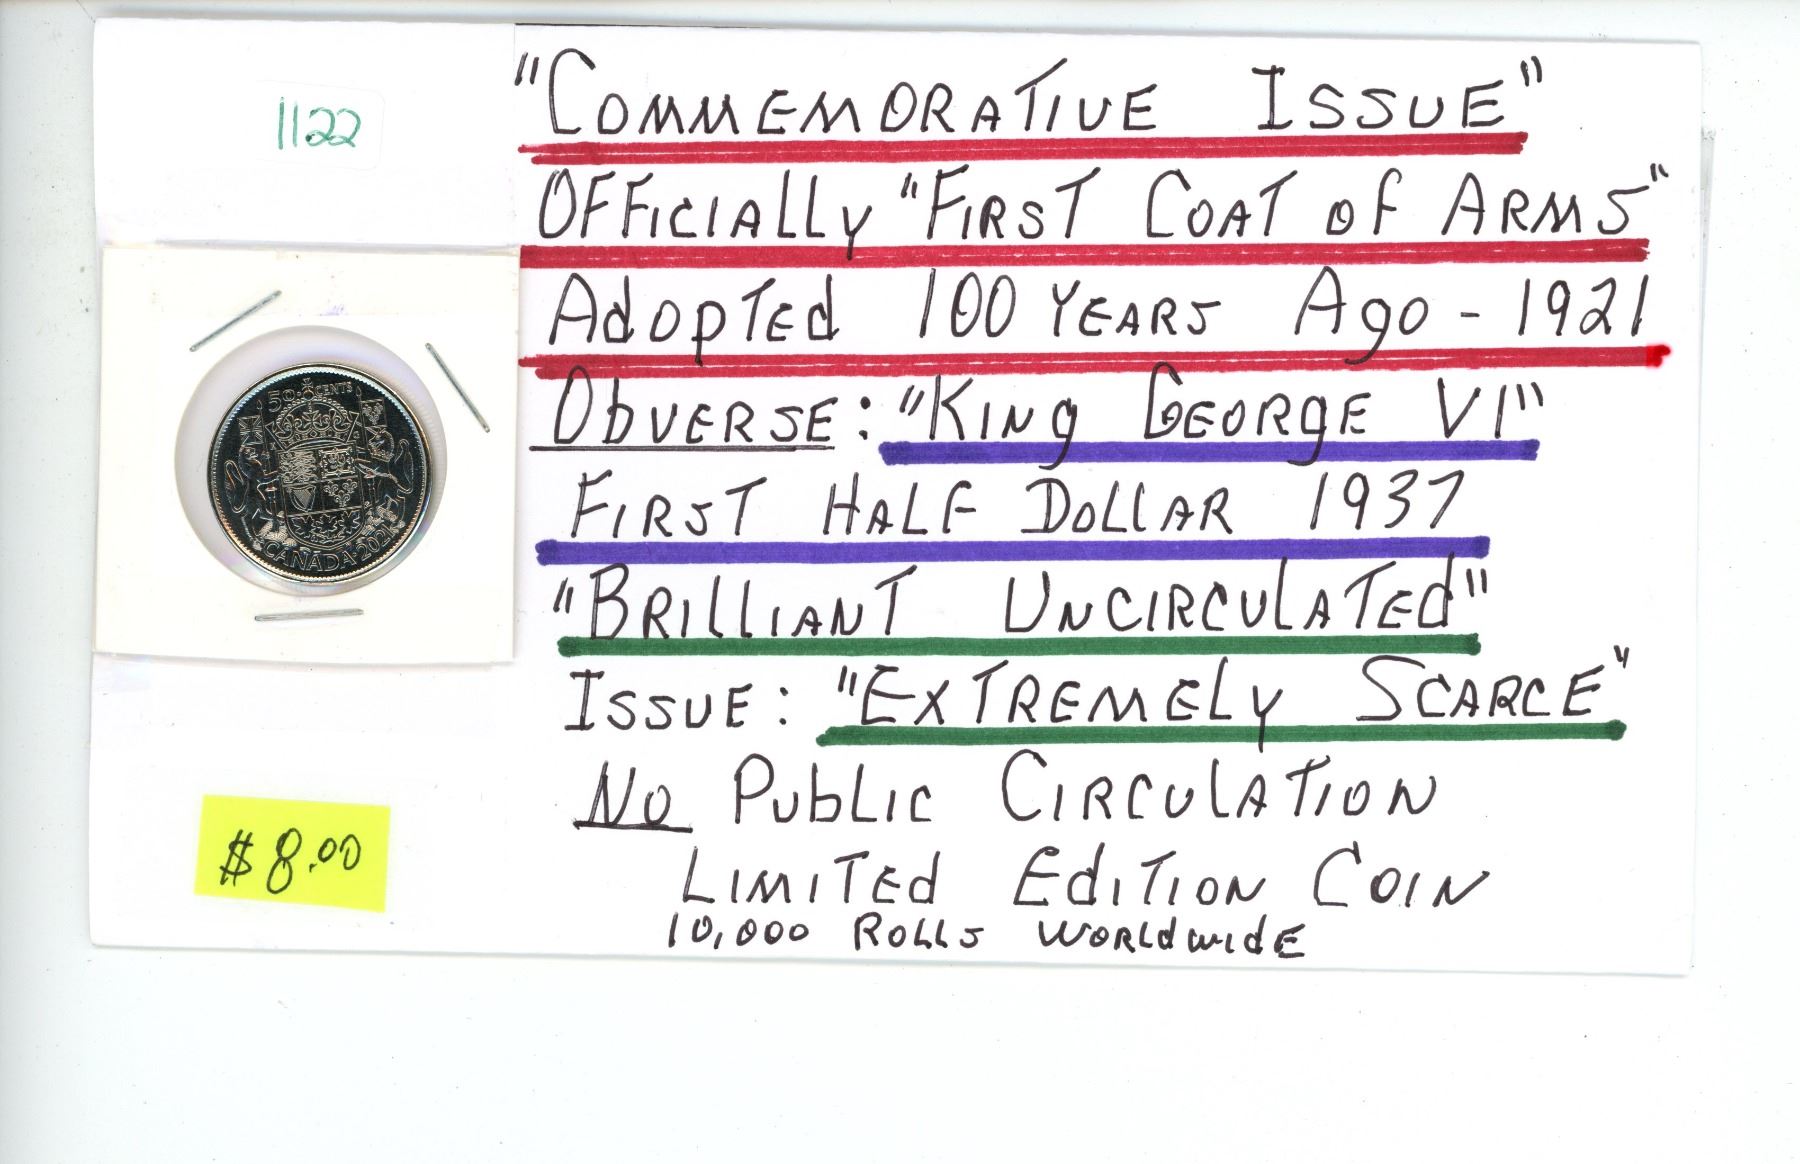 1122
"COMMEMORATIVE ISSUE"
OFFICIALLY "FIRST COAT OF ARMS"
ADOPTED 100 YEARS AGO - 1921
OBVERSE: "KING GEORGE VI"
FIRST HALF DOLLAR 1937
"BRILLIANT UNCIRCULATED"
ISSUE: "EXTREMELY SCARCE"
NO PUBLIC CIRCULATION
LIMITED EDITION COIN
10,000 ROLLS WORLDWIDE
50 CENTS
CANADA 2021
$8.00